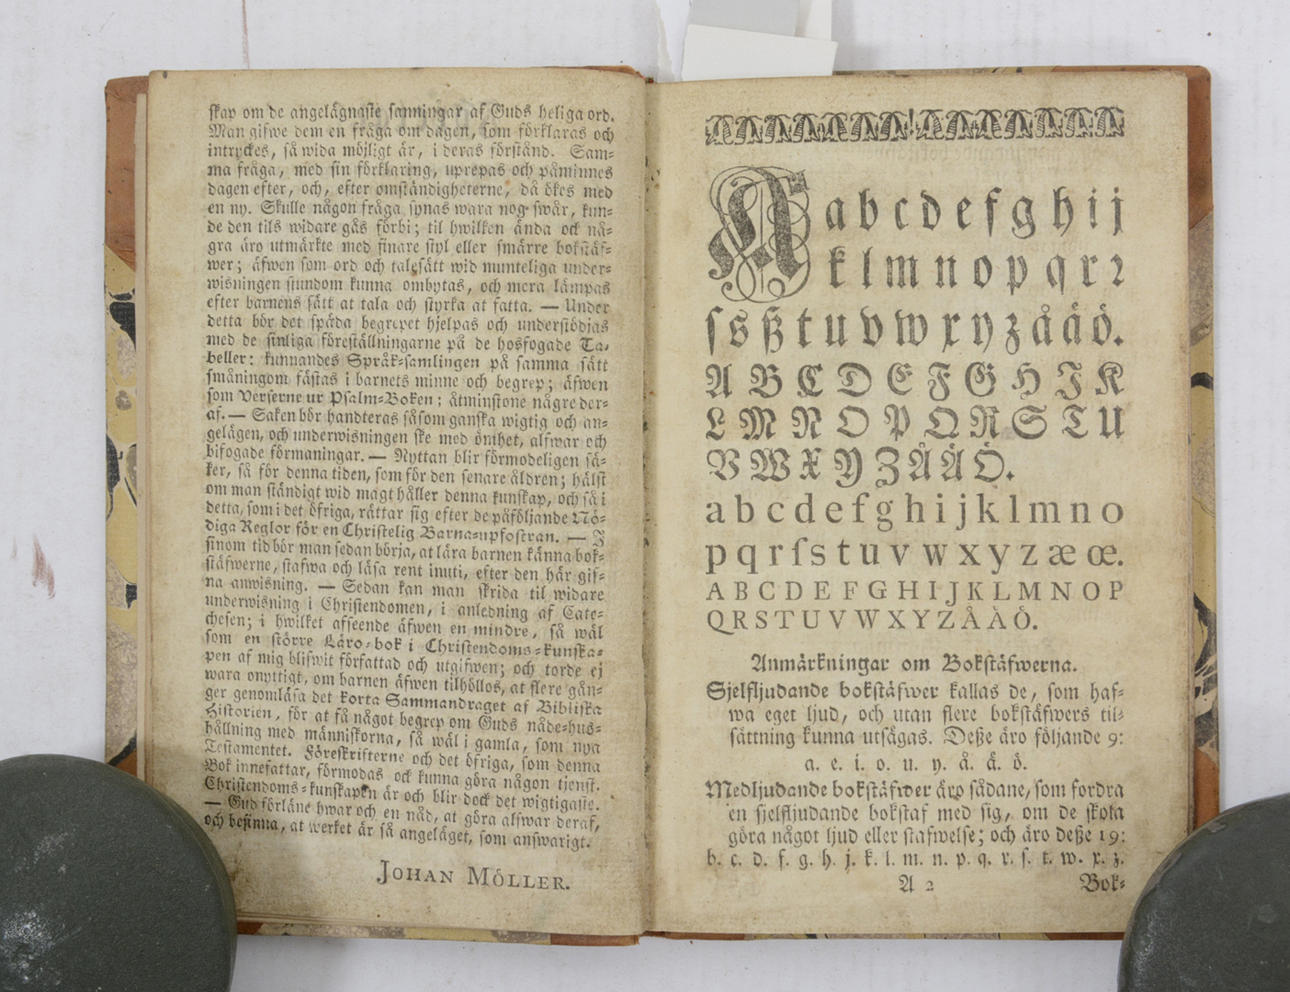 skap om de angelägnaste sanningar af Guds heliga ord.
Man gifwe dem en fråga om dagen, som förklaras och
intryckes, så wida möjligt är, i deras förstånd. Sam-
ma fråga, med sin förklaring, uprepas och påminnes
dagen efter, och, efter omständigheterne, då ökes med
en ny. Skulle någon fråga synas wara nog swår, kun-
de den tils widare gås förbi; til hwilken ända ock nå-
gra äro utmärkte med finare styl eller smärre bokstäf-
wer; äfwen som ord och talesätt wid munteliga under-
wisningen stundom kunna ombytas, och mera lämpas
efter barnens sätt at tala och styrka at fatta. — Under
detta bör det späda begrepet hjelpas och understödjas
med de sinliga föreställningarne på de hosfogade Ta-
beller: kunnandes Språk-samlingen på samma sätt
småningom fästas i barnets minne och begrep; äfwen
som Verserne ur Psalm-Boken; åtminstone några der-
af. — Saken bör handteras såsom ganska wigtig och an-
gelägen, och underwisningen ske med ömhet, alfwar och
bifogade förmaningar. — Nyttan blir förmodeligen sä-
ker, så för denna tiden, som för den senare åldren; hälst
om man ständigt wid magt håller denna kunskap, och så i
detta, som i det öfriga, rättar sig efter de påföljande Nö-
diga Reglor för en Christelig Barna-upfostran. — I
sinom tid bör man sedan börja, at lära barnen känna bok-
stäfwerne, stafwa och läsa rent inuti, efter den här gif-
na anwisning. — Sedan kan man skrida til widare
underwisning i Christendomen, i anledning af Cate-
chesen; i hwilket afseende äfwen en mindre, så wäl
som en större Läro-bok i Christendoms-kunska-
pen af mig blifwit författad och utgifwen; och torde ej
wara onyttigt, om barnen äfwen tilhöllos, at flere gån-
ger genomläsa det korta Sammandraget af Bibliska
Historien, för at få något begrep om Guds nåde-hus-
hållning med människorna, så wäl i gamla, som nya
Testamentet. Föreskrifterne och det öfriga, som denna
Bok innefattar, förmodas ock kunna göra någon tjenst.
Christendoms-kunskapen är och blir dock det wigtigaste.
— Gud förläne hwar och en nåd, at göra alfwar deraf,
och besinna, at werket är så angeläget, som answarigt.
JOHAN MÖLLER.
A a b c d e f g h i j
k l m n o p q r ꝛ
ſ s ß t u v w x y z å ä ö.
A B C D E F G H I K
L M N O P Q R S T U
V W X Y Z Å Ä Ö.
a b c d e f g h i j k l m n o
p q r ſ s t u v w x y z æ œ.
A B C D E F G H I J K L M N O P
Q R S T U V W X Y Z Å Ä Ö.
Anmärkningar om Bokstäfwerna.
Sjelfljudande bokstäfwer kallas de, som haf-
wa eget ljud, och utan flere bokstäfwers til-
sättning kunna utsägas. Deße äro följande 9:
a. e. i. o. u. y. å. ä. ö.
Medljudande bokstäfwer äro sådane, som fordra
en sjelfljudande bokstaf med sig, om de skola
göra något ljud eller stafwelse; och äro deße 19:
b. c. d. f. g. h. j. k. l. m. n. p. q. r. s. t. w. x. z.
A 2 Bok-